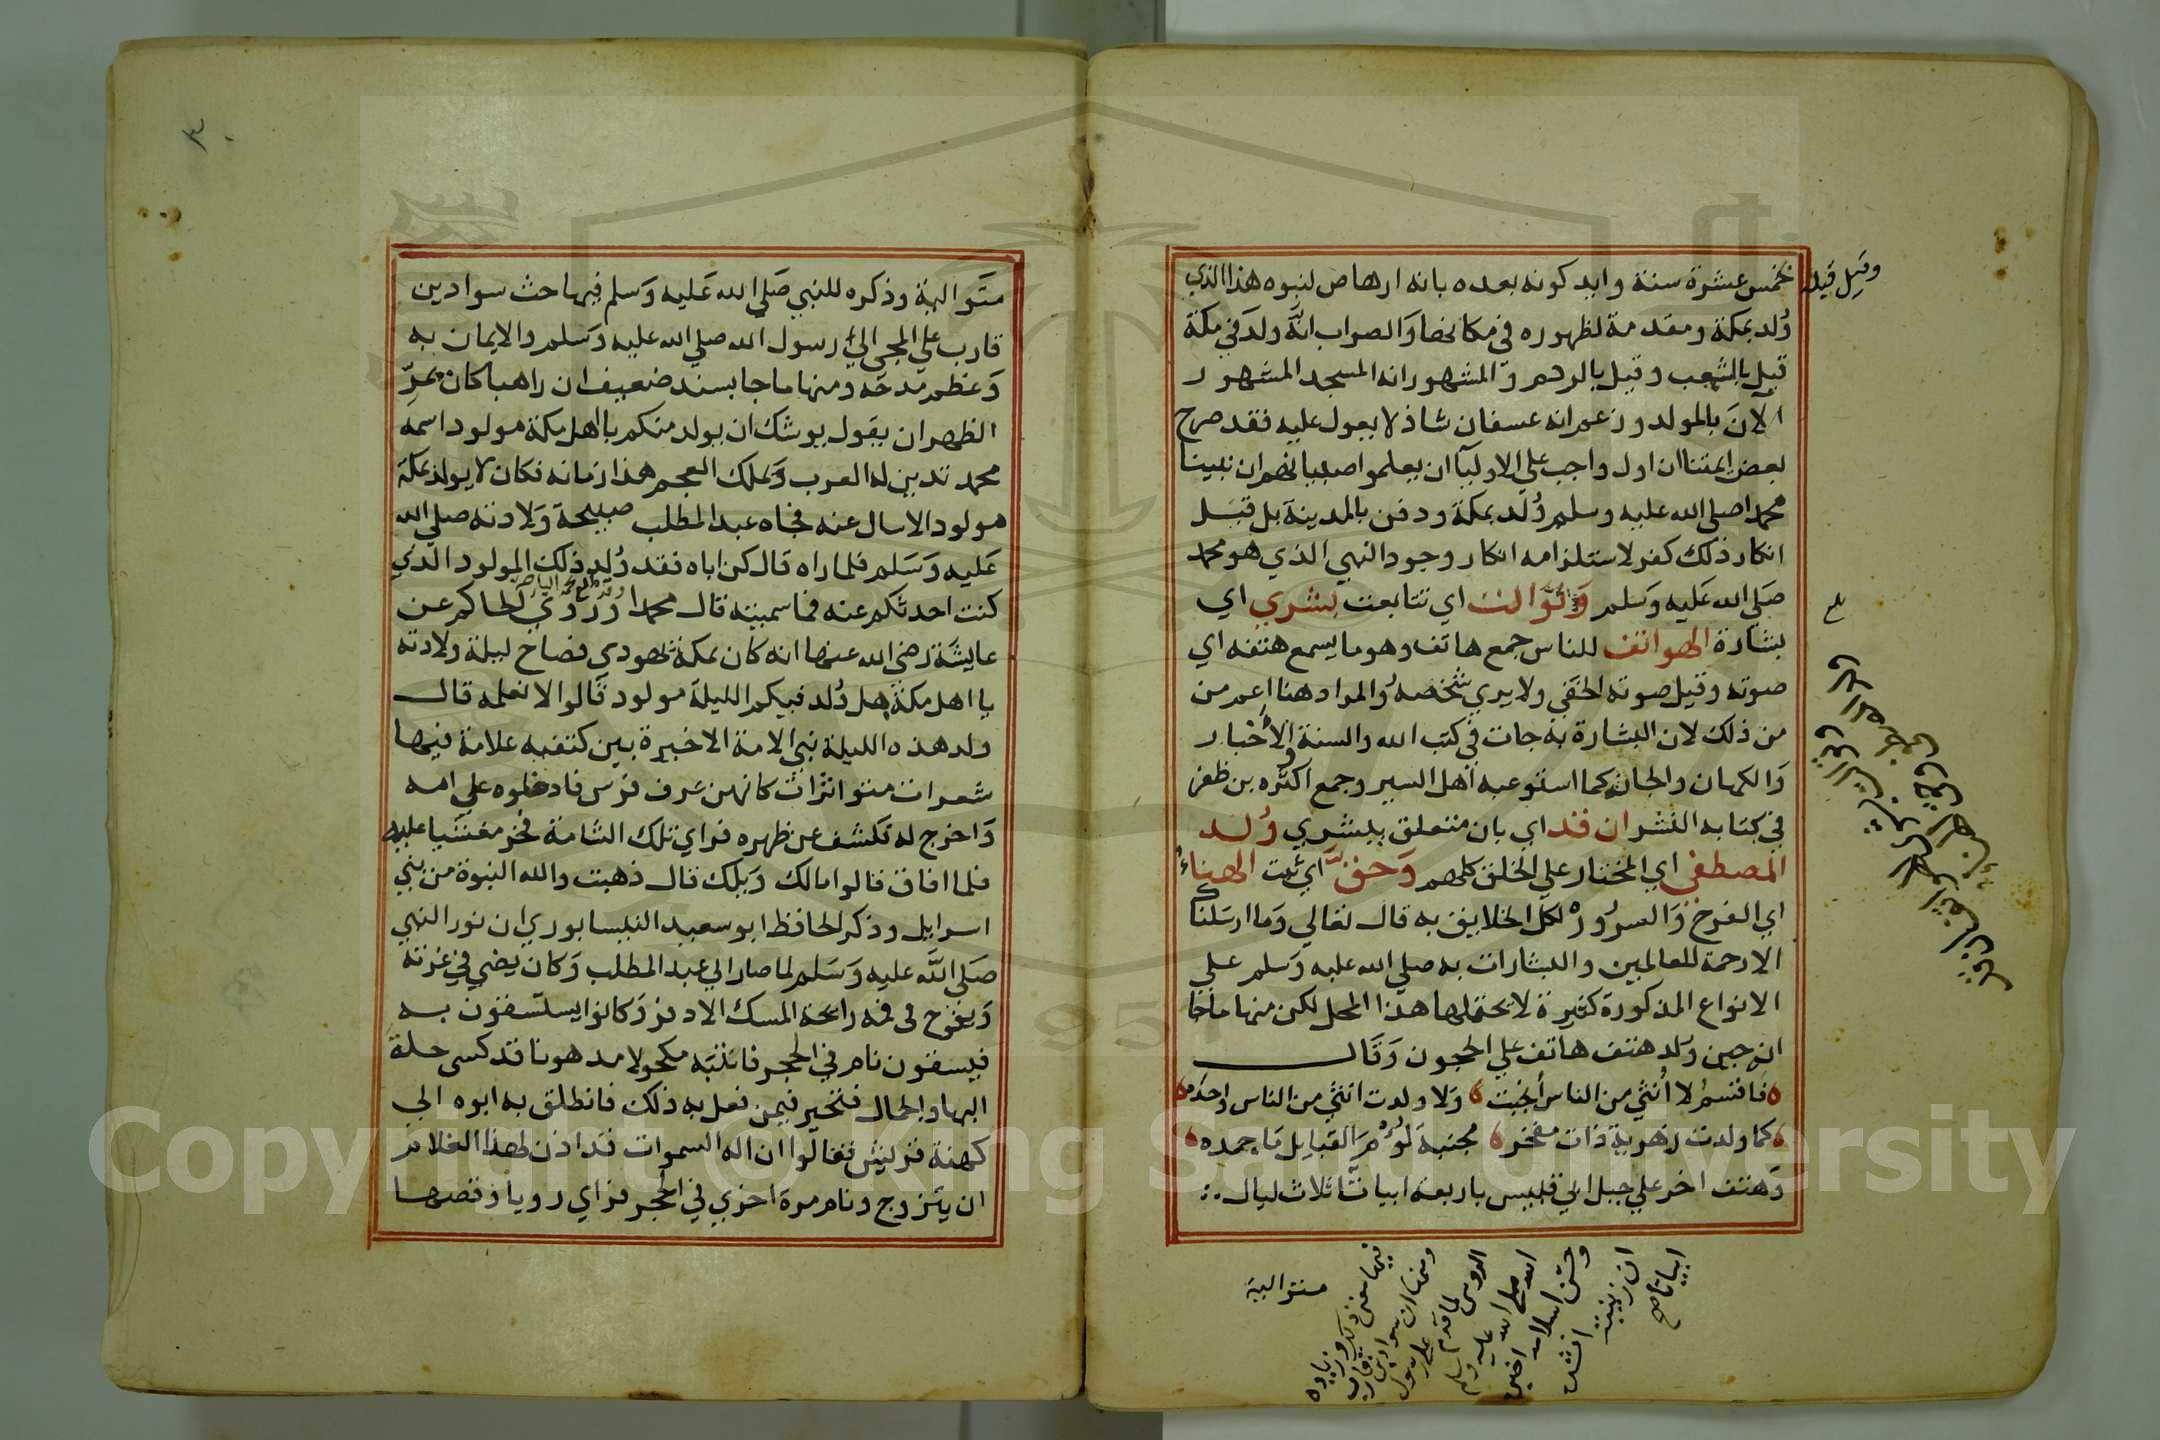 وقيل قبله
بخمس عشرة سنة وايد كونه بعده بانه ارهاص لنبوه هذا الذي
ولد بمكة ومقدمة لظهوره في مكانها والصواب انه ولد في مكة
قيل بالشعب وقيل بالردم والمشهور انه المسجد المشهور
الآن بالمولد وزعم انه عسفان شاذ لا يعول عليه فقد صرح
بعض ايمتنا ان اول واجب علي الاوليآ ان يعلموا صبيانهم ان نبينا
محمدا صلي الله عليه وسلم ولد بمكة ودفن بالمدينة بل قيل
انكار ذلك كفر لاستلزامه انكار وجود النبي الذي هو محمد
صلي الله عليه وسلم وتوالت اي تتابعت بشري اي
بشارة الهواتف للناس جمع هاتف وهو ما يسمع هتفه اي
صوته وقيل صوته الخفي ولا يري شخصه والمراد هنا اعم من
من ذلك لان البشارة به جات في كتب الله والسنة الاخبار
والكهان والجان كما استوعبه اهل السير وجمع اكثره بن ظفر
في كتابه النشر ان قد اي بان متعلق ببشري ولد
المصطفي اي المختار علي الخلق كلهم وحق اي ثبت الهناء
اي الفرح والسرور لكل الخلايق به قال تعالي وما ارسلناك
الا رحمة للعالمين والبشارات به صلي الله عليه وسلم علي
الانواع المذكورة كثيرة لا يحتملها هذا المحل لكن منها ما جا
انه حين ولد هتف هاتف علي الحجون وقال
فاقسم لا انثي من الناس انجبت ولا ولدت انثي من الناس واحده
كما ولدت زهرية ذات مفخر مجنبة لوم القبايل ماجده
وهتف اخر علي جبل ابي قبيس باربعة ابيات ثلاث ليال
متوالية
متوالية وذكره للنبي صلي الله عليه وسلم فيها حث سواد بن
قارب علي المجي الي رسول الله صلي الله عليه وسلم والايمان به
وعظم مدحه ومنها ما جا بسند ضعيف ان راهبا كان بمر
الظهران يقول يوشك ان يولد منكم يا اهل مكة مولود اسمه
محمد تدين له العرب ويملك العجم هذا زمانه فكان لا يولد بمكة
مولود الا سال عنه فجاه عبد المطلب صبيحة ولادته صلي الله
عليه وسلم فلما راه قال كن اباه فقد ولد ذلك المولود الذي
كنت احدثكم عنه فما سميته قال محمدا وروي الحاكم عن
عايشة رضي الله عنها انه كان بمكة يهودي فصاح ليلة ولادته
يا اهل مكة هل ولد فيكم الليلة مولود قالوا لا نعلمه قال
ولد هذه الليلة نبي الامة الاخيرة بين كتفيه علامة فيها
شعرات متواترات كانهن عرف فرس فادخلوه علي امه
واخرج له فكشف عن ظهره فراي تلك الشامة فخر مغشيا عليه
فلما افاق قالوا مالك ويلك قال ذهبت والله النبوة من بني
اسرايل وذكر الحافظ ابو سعيد النيسابوري ان نور النبي
صلي الله عليه وسلم لما صار الي عبد المطلب وكان يضي في غرته
ويفوح من فمه رايحة المسك الاذفر وكانوا يستسقون به
فيسقون نام في الحجر فانتبه مكحولا مدهونا قد كسي حلة
البها والجمال فتحير فيمن فعل به ذلك فانطلق به ابوه الي
كهنة قريش فقالوا ان اله السموات قد اذن لهذا الغلام
ان يتزوج ونام مرة اخري في الحجر فراي رويا وقصها
Copyright © King Saud University